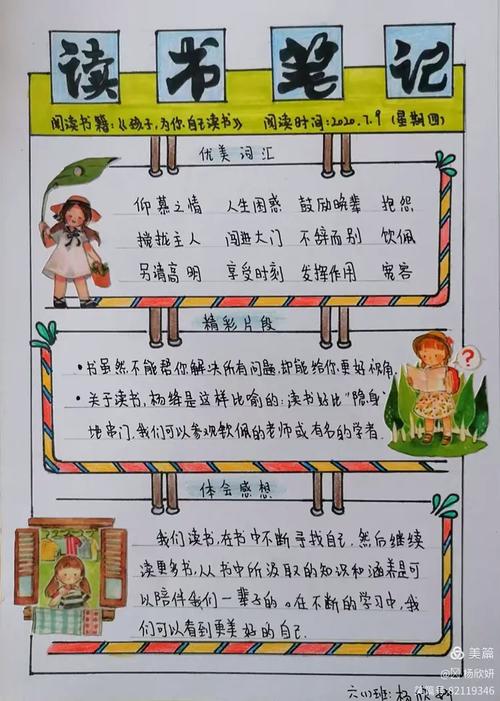 读书笔记
阅读书籍:《孩子,为你自己读书》 阅读时间:2020.7.9 (星期四)
优美词汇
仰慕之情 人生困惑 鼓励晚辈 抱怨
搅扰主人 闯进大门 不辞而别 钦佩
另请高明 享受时刻 发挥作用 宾客
精彩片段
·书虽然不能帮你解决所有问题,却能给你更好视角
·关于读书,杨绛是这样比喻的:读书好比“隐身”
地串门,我们可以参观钦佩的老师或有名的学者.
?
体会感想
我们读书,在书中不断寻找自己,然后继续
读更多书,从书中所汲取的知识和涵养是可
以陪伴我们一辈子的。在不断的学习中,我
们可以看到更美好的自己.
美篇
@杨欣妍
82119346
六(1)班:杨欣妍